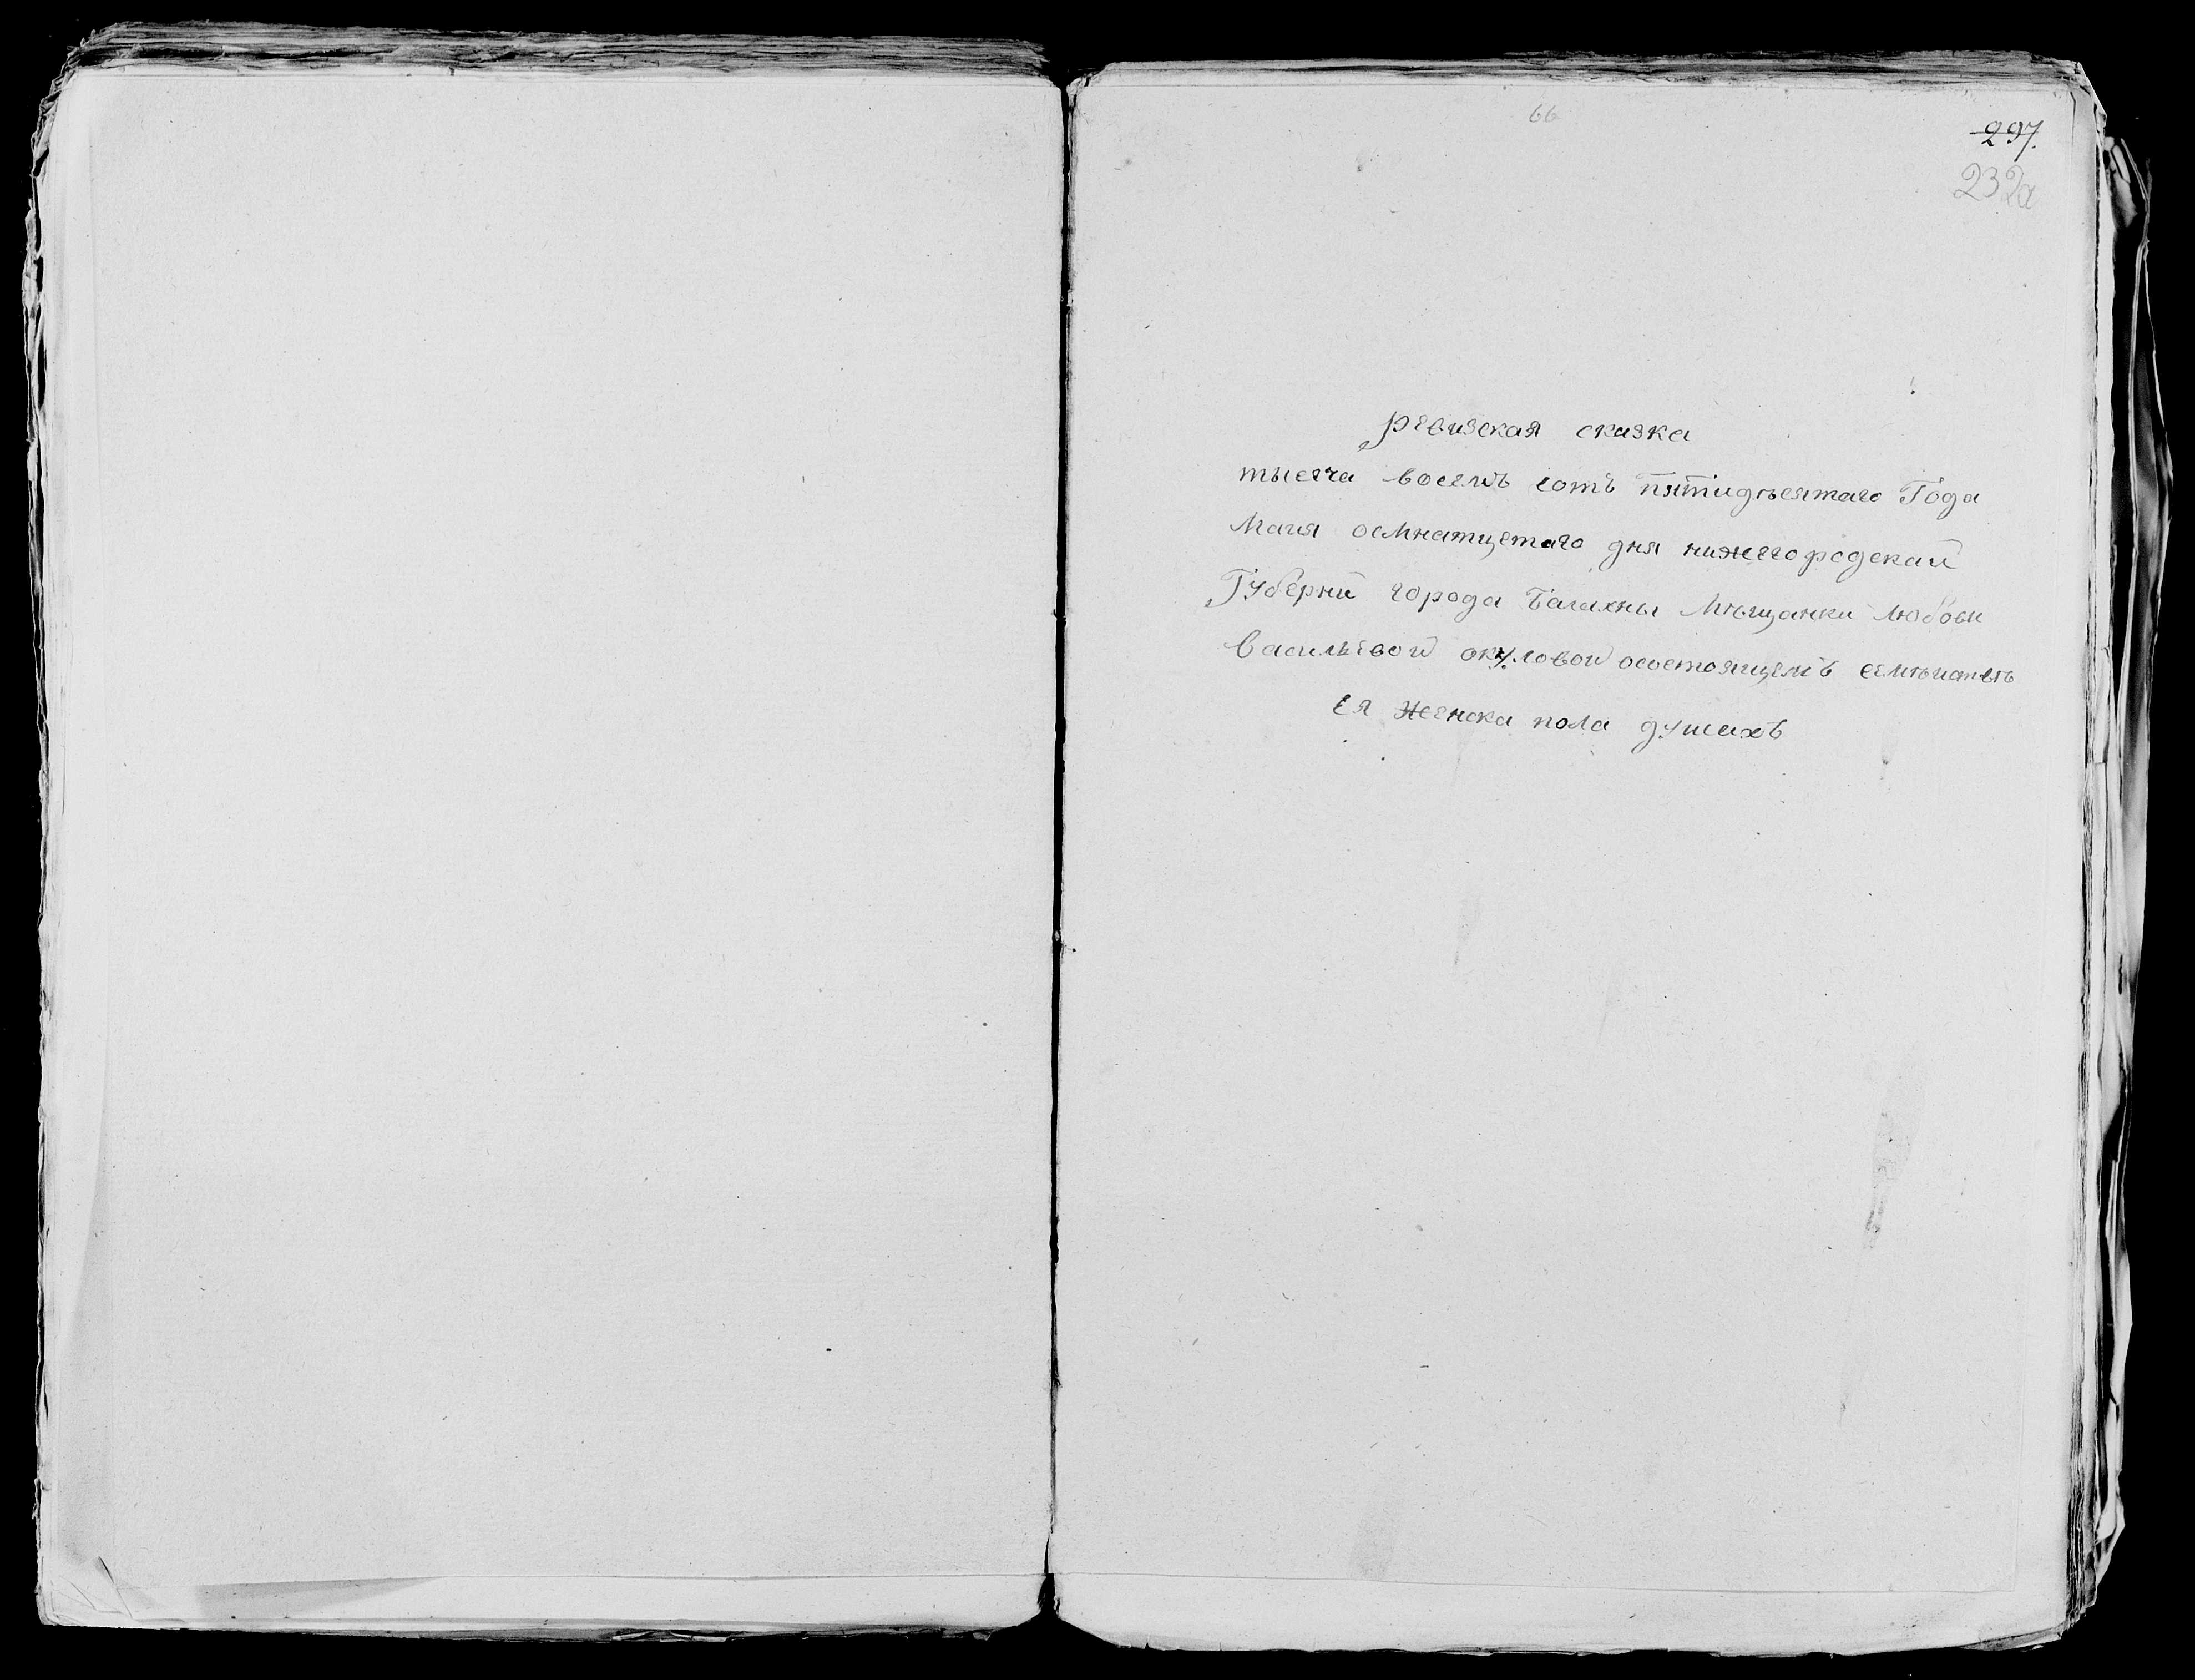 66
297.
232а
ревизская сказка
тысеча восемь сотъ пятидѣсятаго Года
Маия осмнатцетаго дня нижегородскай
Губерни города Балахны Мѣщанки Любови
Васильевой окуловой осостоящемъ семѣистѣ
ея женска пола душахъ